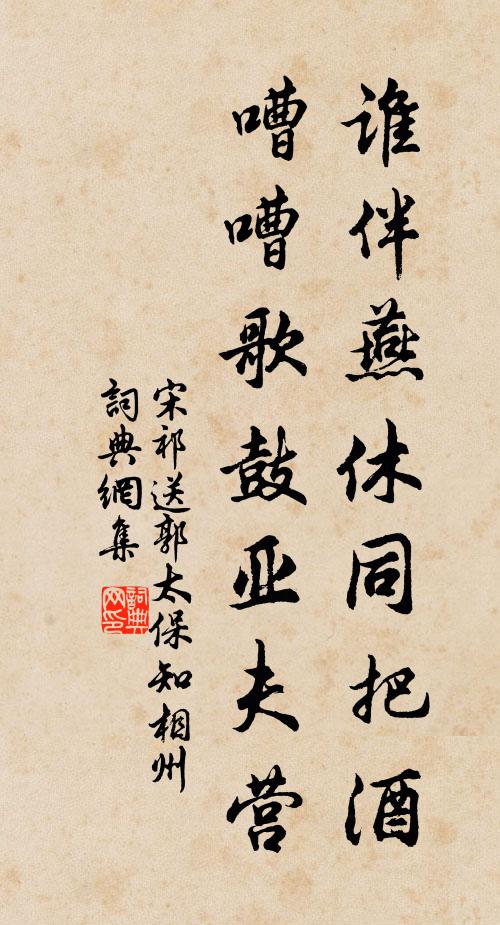 谁伴燕休同把酒
嘈嘈歌鼓亚夫营
宋祁送郭太保知相州
詞典網集
詞典网印